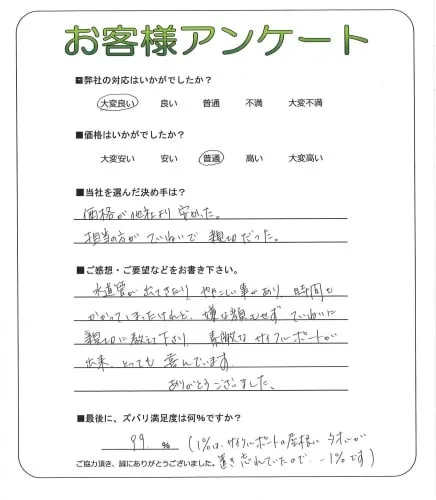 お客様アンケート
■弊社の対応はいかがでしたか？
大変良い 良い 普通 不満 大変不満
■価格はいかがでしたか？
大変安い 安い 普通 高い 大変高い
■当社を選んだ決め手は？
価格が他社より安かった。
担当の方がていねいで親切だった。
■ご感想・ご要望などをお書き下さい。
水道管が出てきたり、やたらしい事があり、時間も
かかってしまったけれど、嫌な顔もせず ていねいに
親切に教えて下さり、素敵なサイクルポートが
出来、とっても喜んでいます
ありがとうございました。
■最後に、ズバリ満足度は何％ですか？
99 ％ (1%は、サイクルポートの屋根に
置き忘れていたので、-1%です)
ご協力頂き、誠にありがとうございました。